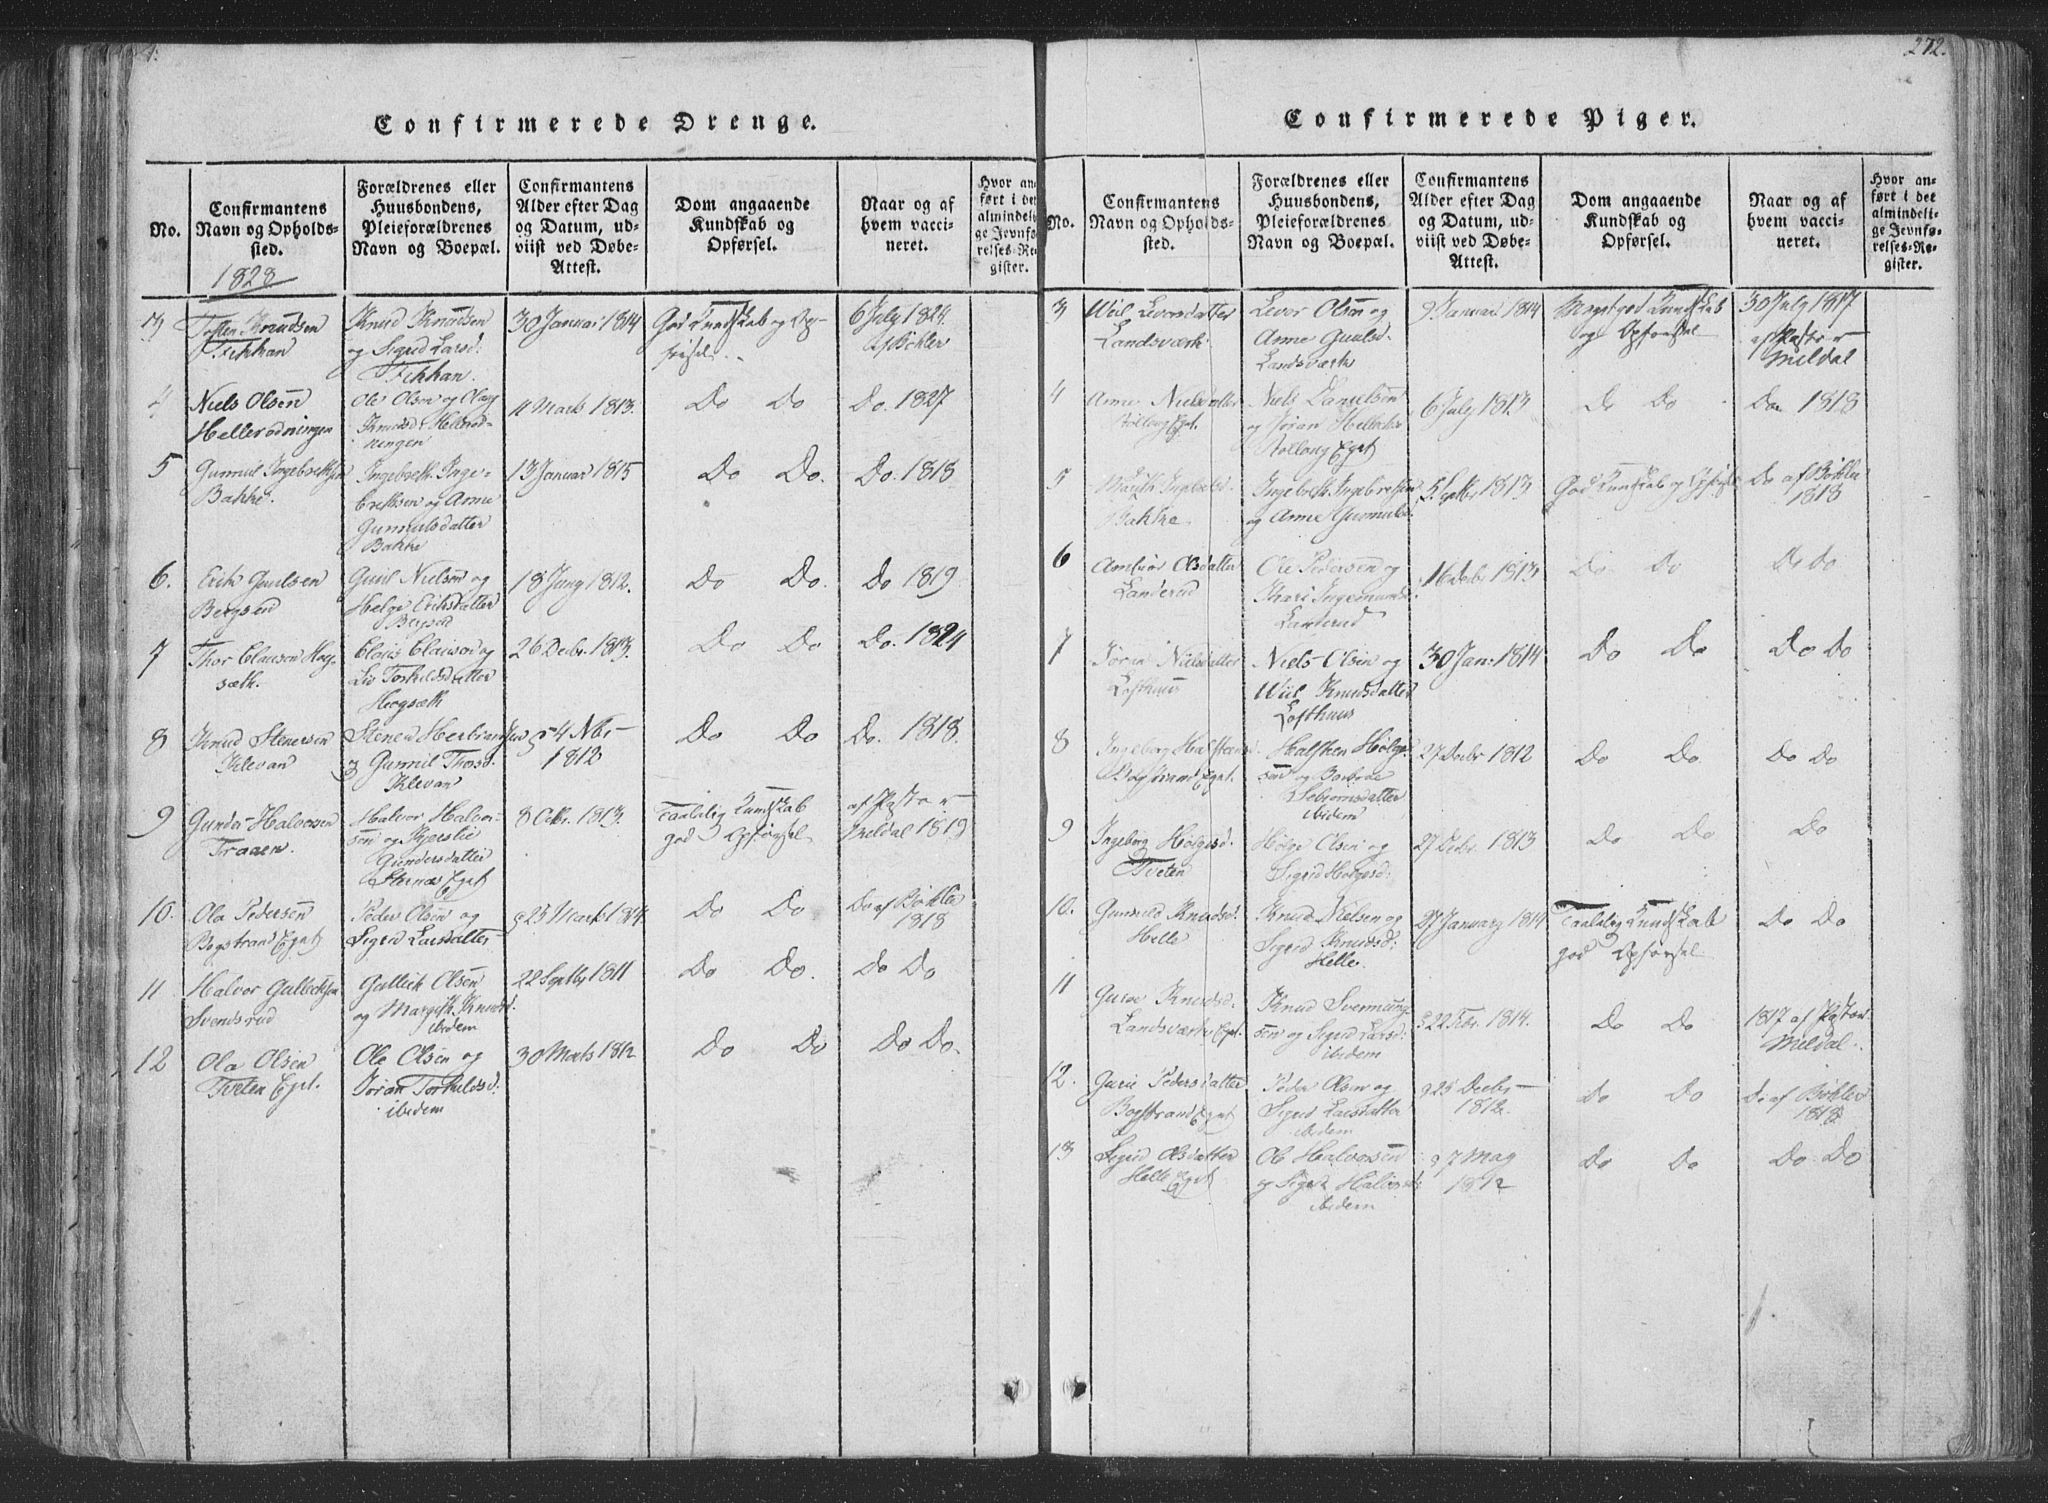 4.
Confirmerede Drenge.
No.
Confirmantens
Navn og Opholds-
sted.
1828
Forældrenes eller
Huusbondens,
Pleieforældrenes
Navn og Boepæl.
Confirmantens
Alder efter Dag
og Datum, ud-
viist ved Døbe-
Attest.
Dom angaaende
Kundskab og
Opførsel.
Naar og af
hvem vacci-
neret.
Hvor an-
ført i det
almindeli-
ge Jevnfø-
relses-Re-
gister.
3
Tosten Knudsen
Fekkan
Knud Knudsen
og Sigrid Larsd:
Fekkan.
30 Januar 1814
God Kundskab og Op-
førsel
6 July 1824
af Bøhler
4
Niels Olsen
Hellerødningen
Ole Olsen og
Knudsd. Hellerød-
ningen
11 Marts 1813.
Do Do
Do. 1827
5
Gunnuil Ingebrethsen
Bakke.
Ingebreth Inge-
brethsen og Anne
Gunnulsdatter
Bakke
13 Januar 1815
Do Do.
Do. 1818
6.
Erik Guulsen
Bergsed
Guul Nielsen og
Helge Eriksdatter
Bergsed
18 Juny 1812.
Do Do.
Do 1819
7
Thor Clausen Hog-
sæth.
Claus Clausen og
Liv Torkildsdatter
Hogsæth
26 Decbr. 1813.
Do Do
Do. 1824
8
Knud Stenersen
Klevan
Stener Herbrandsen
og Gunnil Thorsd.
Klevan
4 Nbr.
1812
Do Do
Do. 1818.
9
Gunder Halvorsen
Traaen.
Halvor Halvor-
sen og Kjerstie
Gundersdatter
Sternæs Eget
8 Octbr. 1813.
Taalelig Kundskab
god Opførsel
af Pastor
Meldal 1819
10.
Ola Pedersen
Bogstrand Eget
Peder Olsen og
Sigrid Larsdatter
25 Marts 1814.
Do Do
Do af Bøhler
1818
11
Halvor Gulleksen
Svendsrud
Gullik Olsen
og Margith Knudsd.
ibidem
22 Septbr 1811
Do Do.
Do Do
12
Ola Olsen
Tveten Eget.
Ole Olsen og
Jøran Torkildsd.
ibidem
30 Marts 1812
Do Do
Do Do.
272.
Confirmerede Piger.
No.
Confirmantens
Navn og Opholds-
sted.
Forældrenes eller
Huusbondens,
Pleieforældrenes
Navn og Boepæl.
Confirmantens
Alder efter Dag
og Datum, ud-
viist ved Døbe-
Attest.
Dom angaaende
Kundskab og
Opførsel.
Naar og af
hvem vacci-
neret.
Hvor an-
ført i det
almindeli-
ge Jevnfø-
relses-Re-
gister.
3
Weil Levorsdatter
Landsværk.
Levor Olsen og
Anne Guulsd.
Landsværk
9 Januar 1814
Meget god Kundskab
og Opførsel
30 July 1817
af Pastor
Meldal
4
Anne Nielsdatter
Eget.
Niels Danielsen
og Jøran
Eget
6 July 1813
Do Do
Do. 1818
5
Ingebretsd.
Bakke
Ingebreth Ingebretsen
og Anne Gunnulsd.
5 Septbr 1813
God Kundskab og Opførsel
Do af Bøhler
1818
6
Ambiør Olsdatter
Landerud
Ole Pedersen og
Kari Ingemunds.
Landerud
16 Decbr 1813
Do Do
Do Do
7
Jøran Nielsdatter
Lofthuus
Niels Olsen og
Wiil Knudsdatter
Lofthuus
30 Jan: 1814
Do Do
Do Do
8
Ingeborg Halstensd.
Bogstrand Eget.
Halsten Holge-
sen og Barbroe
ibidem
27 Decbr 1812
Do Do
Do Do
9
Ingeborg Holgesd.
Tveten
Holge Olsen og
Sigrid Holgesd:
27 Decbr. 1813
Do Do
Do
10.
Gunild Knudsd.
Helle
Knud Nielsen og
Sigrid Knudsd:
Helle.
27 January 1814
Taalelig Kundskab
god Opførsel
Do Do
11
Guroe Knudsd.
Landsværk Eget.
Knud Svennung-
sen og Sigrid Larsd:
ibidem
22 Febr. 1814.
Do Do
1817 af Pastor
Meldal.
12.
Gurie Pedersdatter
Bogstrand Eget
Peder Olsen og
Sigrid Larsdatter
ibidem
25 Decbr
1812.
Do Do
Do af Bøhler
1818
13
Sigrid Olsdatter
Helle Eget
Ole Halvorsen
og Sigrid Halvorsd:
ibidem
7 May
1812
Do Do
Do Do